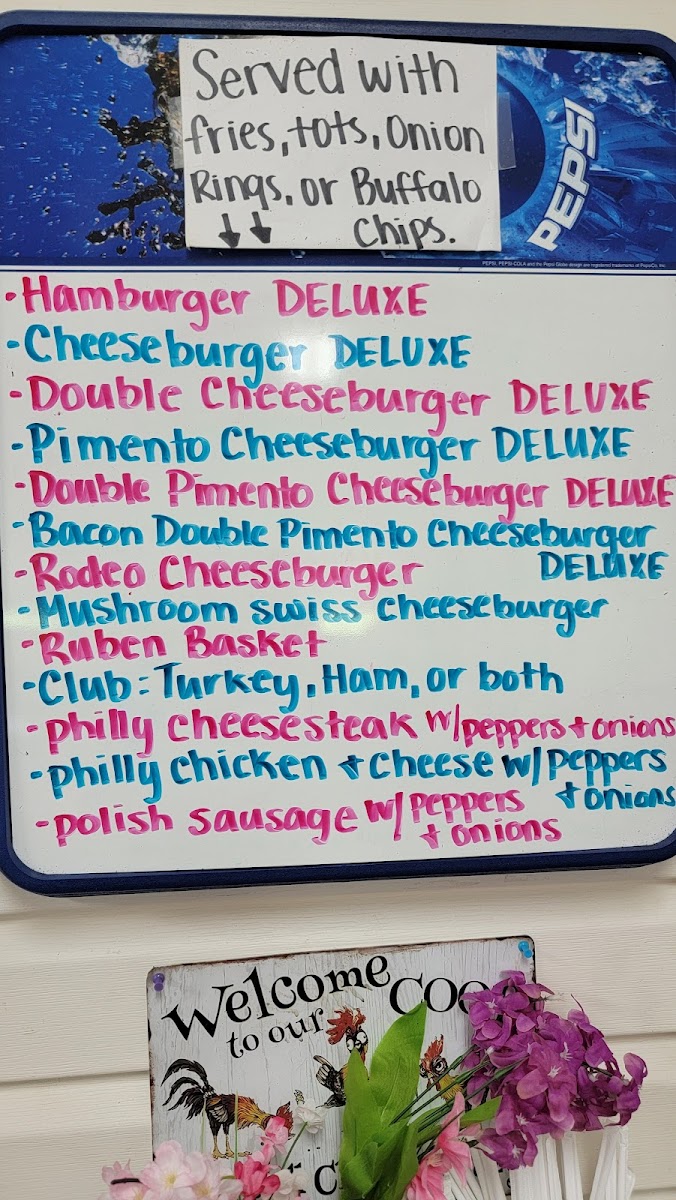 Served with
fries, tots, Onion
Rings, or Buffalo
Chips.
PEPSI
PEPSI, PEPSI-COLA and the Pepsi Globe design are registered trademarks of PepsiCo, Inc.
·Hamburger DELUXE
-Cheeseburger DELUXE
-Double Cheeseburger DELUXE
-Pimento Cheeseburger DELUXE
-Double Pimento Cheeseburger DELUXE
-Bacon Double Pimento Cheeseburger
DELUXE
-Rodeo Cheeseburger
-Mushroom swiss cheeseburger
-Ruben Basket
-Club: Turkey, Ham, or both
-philly cheesesteak w/peppers + onions
-philly chicken + cheese w/ peppers
+ onions
-polish sausage w/ peppers
+ onions
Welcome
to our